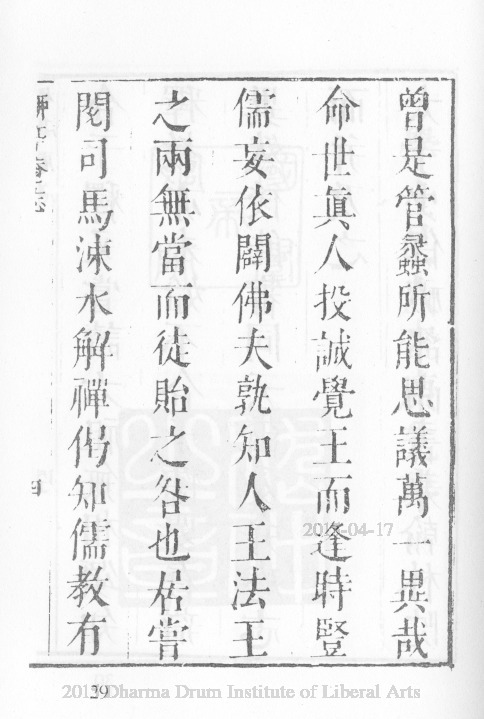 曾是管蠡所能思議萬一異哉
命世眞人投誠覺王而逢時豎
儒妄依闢佛夫孰知人王法王
之兩無當而徒貽之咎也居嘗
閱司馬涑水解禪偈知儒教有
四
2015-04-17
29
Dharma Drum Institute of Liberal Arts